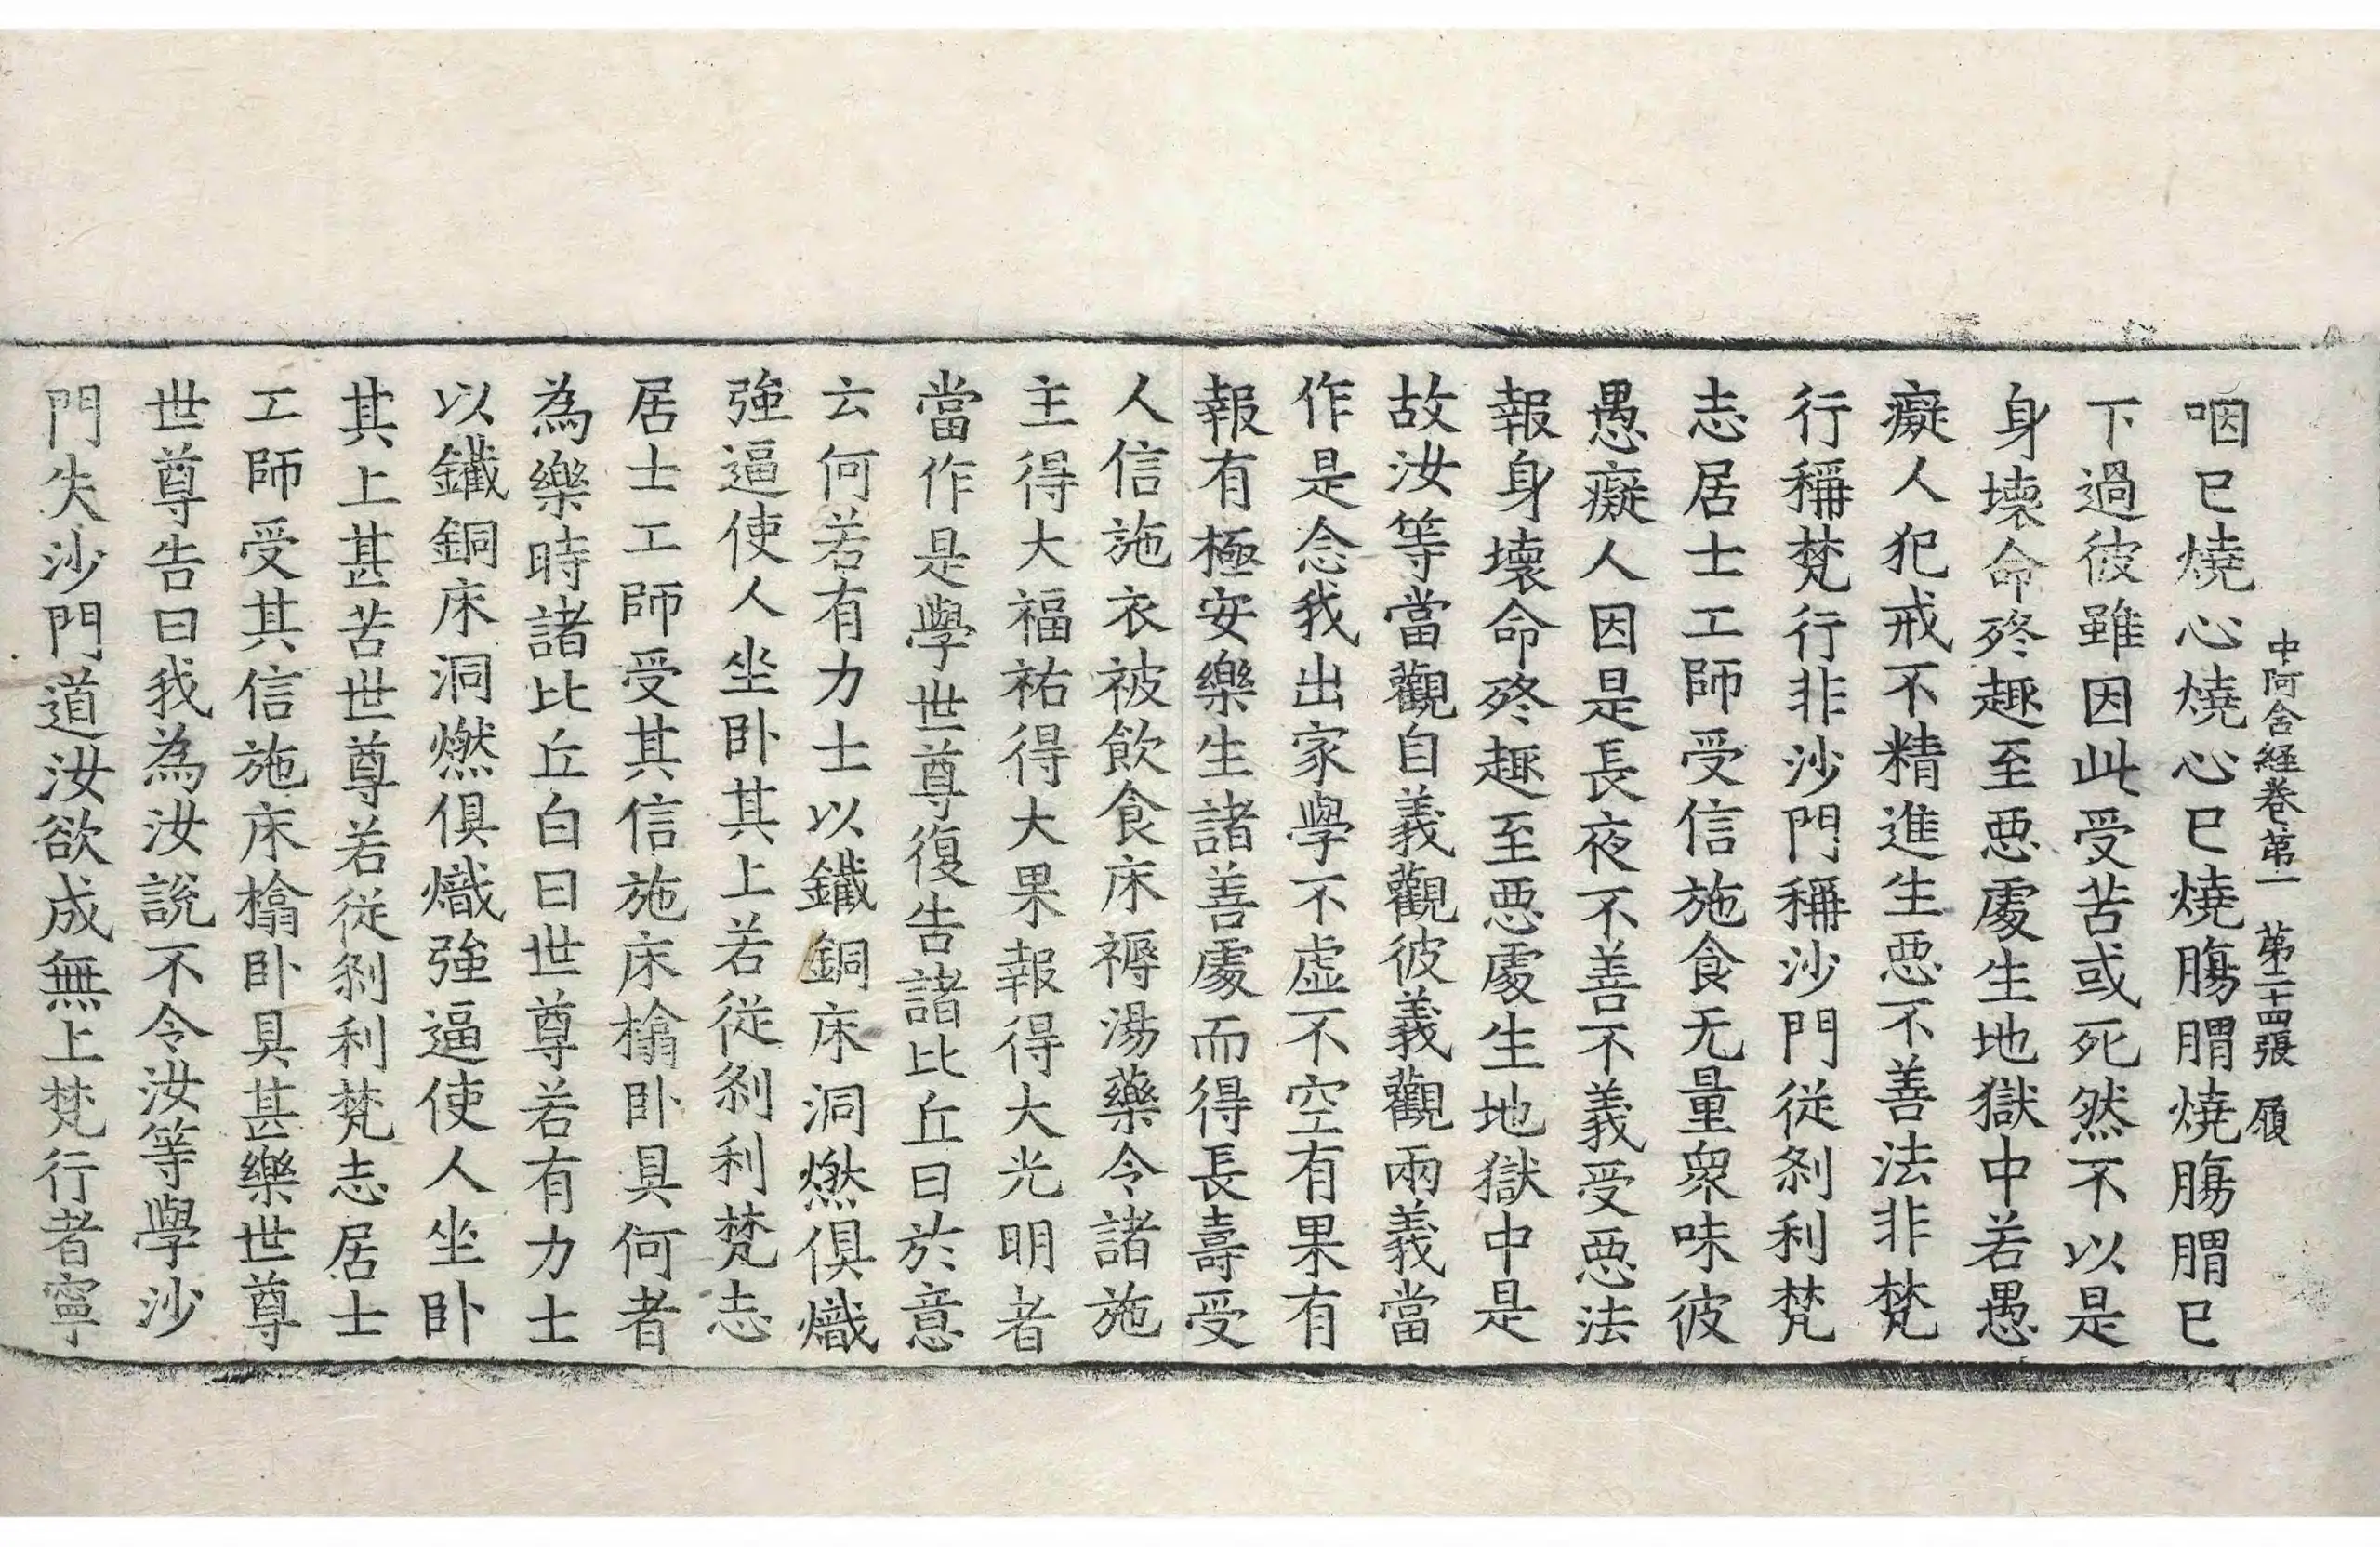 中阿含経卷第一　第二十四張　履
咽已燒心燒心已燒腸胃燒腸胃已
下過彼雖因此受苦或死然不以是
身壞命終趣至惡處生地獄中若愚
癡人犯戒不精進生惡不善法非梵
行稱梵行非沙門稱沙門從剎利梵
志居士工師受信施食无量衆味彼
愚癡人因是長夜不善不義受惡法
報身壞命終趣至惡處生地獄中是
故汝等當觀自義觀彼義觀兩義當
作是念我出家學不虛不空有果有
報有極安樂生諸善處而得長壽受
人信施衣被飲食床褥湯藥令諸施
主得大福祐得大果報得大光明者
當作是學世尊復告諸比丘曰於意
云何若有力士以鐵銅床洞燃俱熾
強逼使人坐卧其上若從剎利梵志
居士工師受其信施床榻卧具何者
為樂時諸比丘白曰世尊若有力士
以鐵銅床洞燃俱熾強逼使人坐卧
其上甚苦世尊若從剎利梵志居士
工師受其信施床榻卧具甚樂世尊
世尊告曰我為汝說不令汝等學沙
門失沙門道汝欲成無上梵行者寧